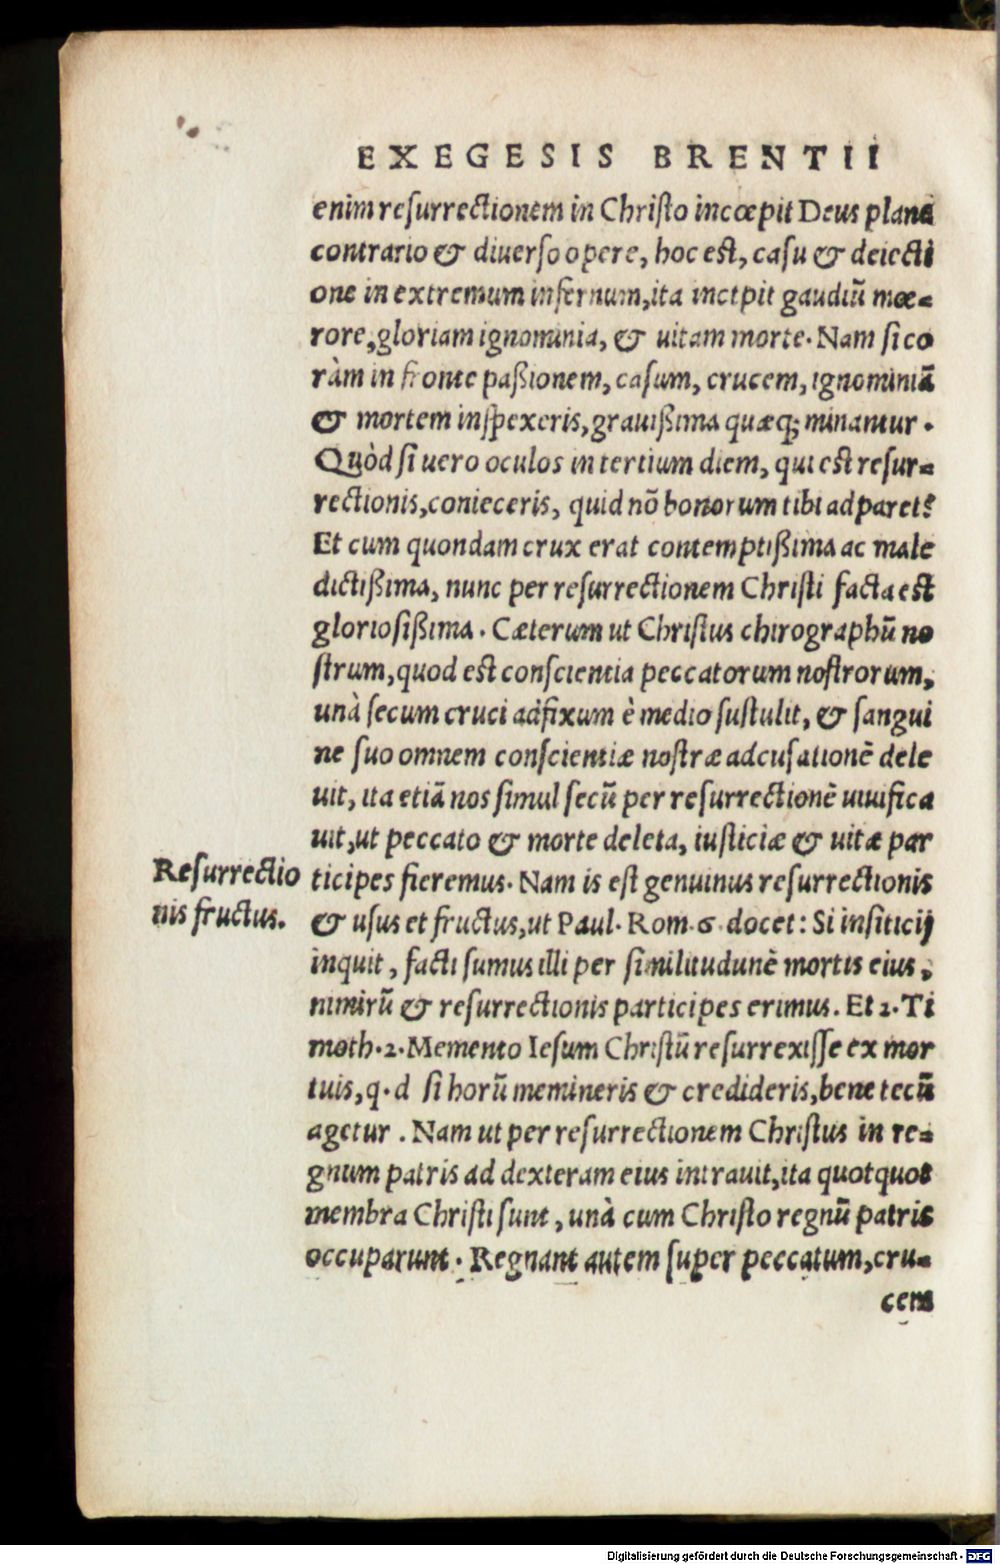 EXEGESIS BRENTII
enim resurrectionem in Christo incœpit Deus planè
contrario & diuerso opere, hoc est, casu & deiecti
one in extremum infernum, ita incępit gaudiũ mœ-
rore, gloriam ignominia, & uitam morte. Nam si co
ràm in fronte paßionem, casum, crucem, ignominiã
& mortem inspexeris, grauißima quæq; minantur.
Quòd si uero oculos in tertium diem, qui est resur-
rectionis, conieceris, quid nõ bonorum tibi adparet?
Et cum quondam crux erat contemptißima ac male
dictißima, nunc per resurrectionem Christi facta est
gloriosißima. Cæterum ut Christus chirographũ no
strum, quod est conscientia peccatorum nostrorum,
unà secum cruci adfixum è medio sustulit, & sangui
ne suo omnem conscientiæ nostræ adcusationẽ dele
uit, ita etiã nos simul secũ per resurrectionẽ uiuifica
uit, ut peccato & morte deleta, iusticiæ & uitæ par
Resurrectio
nis fructus.
ticipes fieremus. Nam is est genuinus resurrectionis
& usus et fructus, ut Paul. Rom. 6. docet: Si insiticij
inquit, facti sumus illi per similitudunẽ mortis eius,
nimirũ & resurrectionis participes erimus. Et 2. Ti
moth. 2. Memento Iesum Christũ resurrexisse ex mor
tuis, q. d si horũ memineris & credideris, bene tecũ
agetur. Nam ut per resurrectionem Christus in re-
gnum patris ad dexteram eius intrauit, ita quotquot
membra Christi sunt, unà cum Christo regnũ patris
occuparunt. Regnant autem super peccatum, cru-
cem
Digitalisierung gefördert durch die Deutsche Forschungsgemeinschaft - DFG